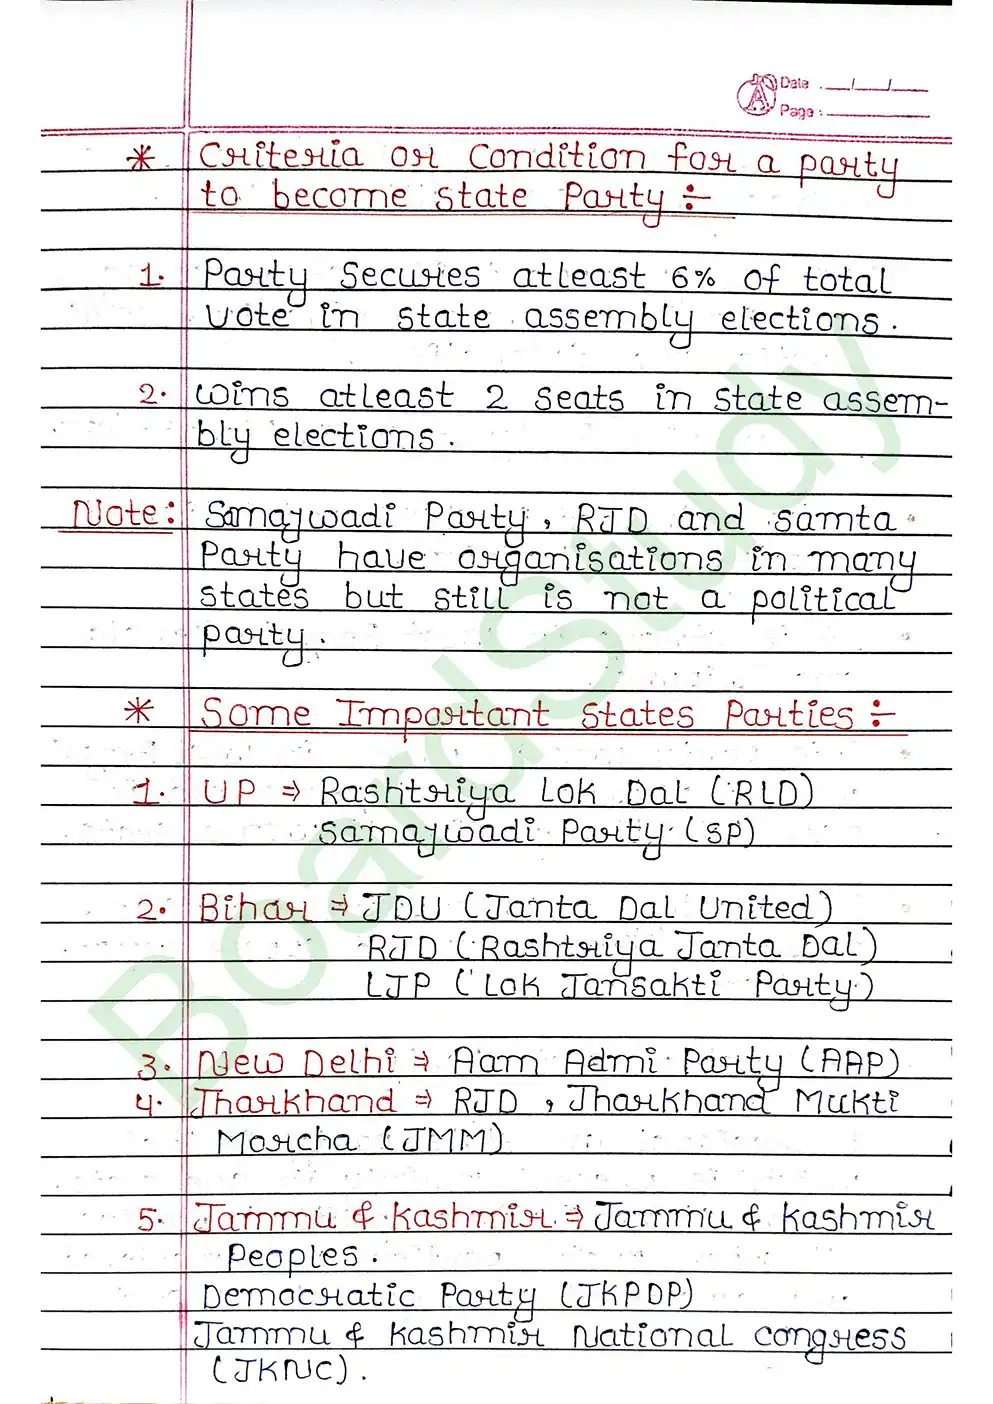 Date : __/__/__
Page :
* Criteria or Condition for a party
to become state Party ÷
1. Party Secures atleast 6% of total
vote in state assembly elections.
2. Wins atleast 2 seats in state assem-
bly elections.
Note: Samajwadi Party, RJD and samta
Party have organisations in many
states but still is not a political
party.
* Some Important States Parties ÷
1. UP ⇒ Rashtriya Lok Dal (RLD)
Samajwadi Party (SP)
2. Bihar ⇒ JDU (Janta Dal United)
RJD (Rashtriya Janta Dal)
LJP (Lok Jansakti Party)
3. New Delhi ⇒ Aam Admi Party (AAP)
4. Jharkhand ⇒ RJD, Jharkhand Mukti
Morcha (JMM)
5. Jammu & Kashmir ⇒ Jammu & Kashmir
Peoples.
Democratic Party (JKPDP)
Jammu & Kashmir National congress
(JKNC).
BoardStudy